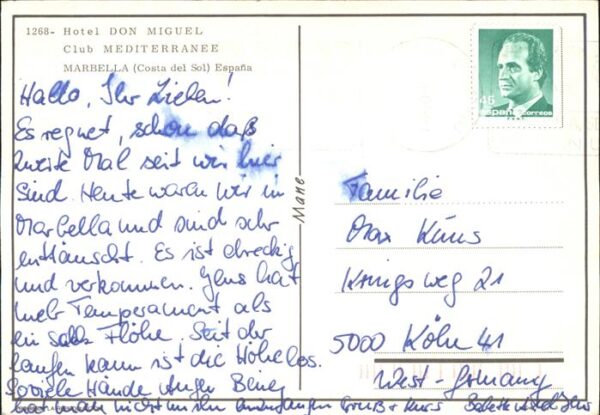 1268- Hotel DON MIGUEL
Club MEDITERRANEE
MARBELLA (Costa del Sol) España
Hallo, Ihr Lieben!
Es regnet, schon daß
zweite Mal seit wir hier
sind. Heute waren wir in
Marbella und sind sehr
enttäuscht. Es ist dreckig
und verkommen. Jens hat
mehr Temperament als
ein Sack Flöhe. Seit der
laufen kann ist die Hölle los.
Soviele Hände Augen Beine
hat man nicht um ihn Gruß + Kuss
Mane
45
España correos
Familie
Max
Königsweg 21
5000 Köln 41
West-Germany